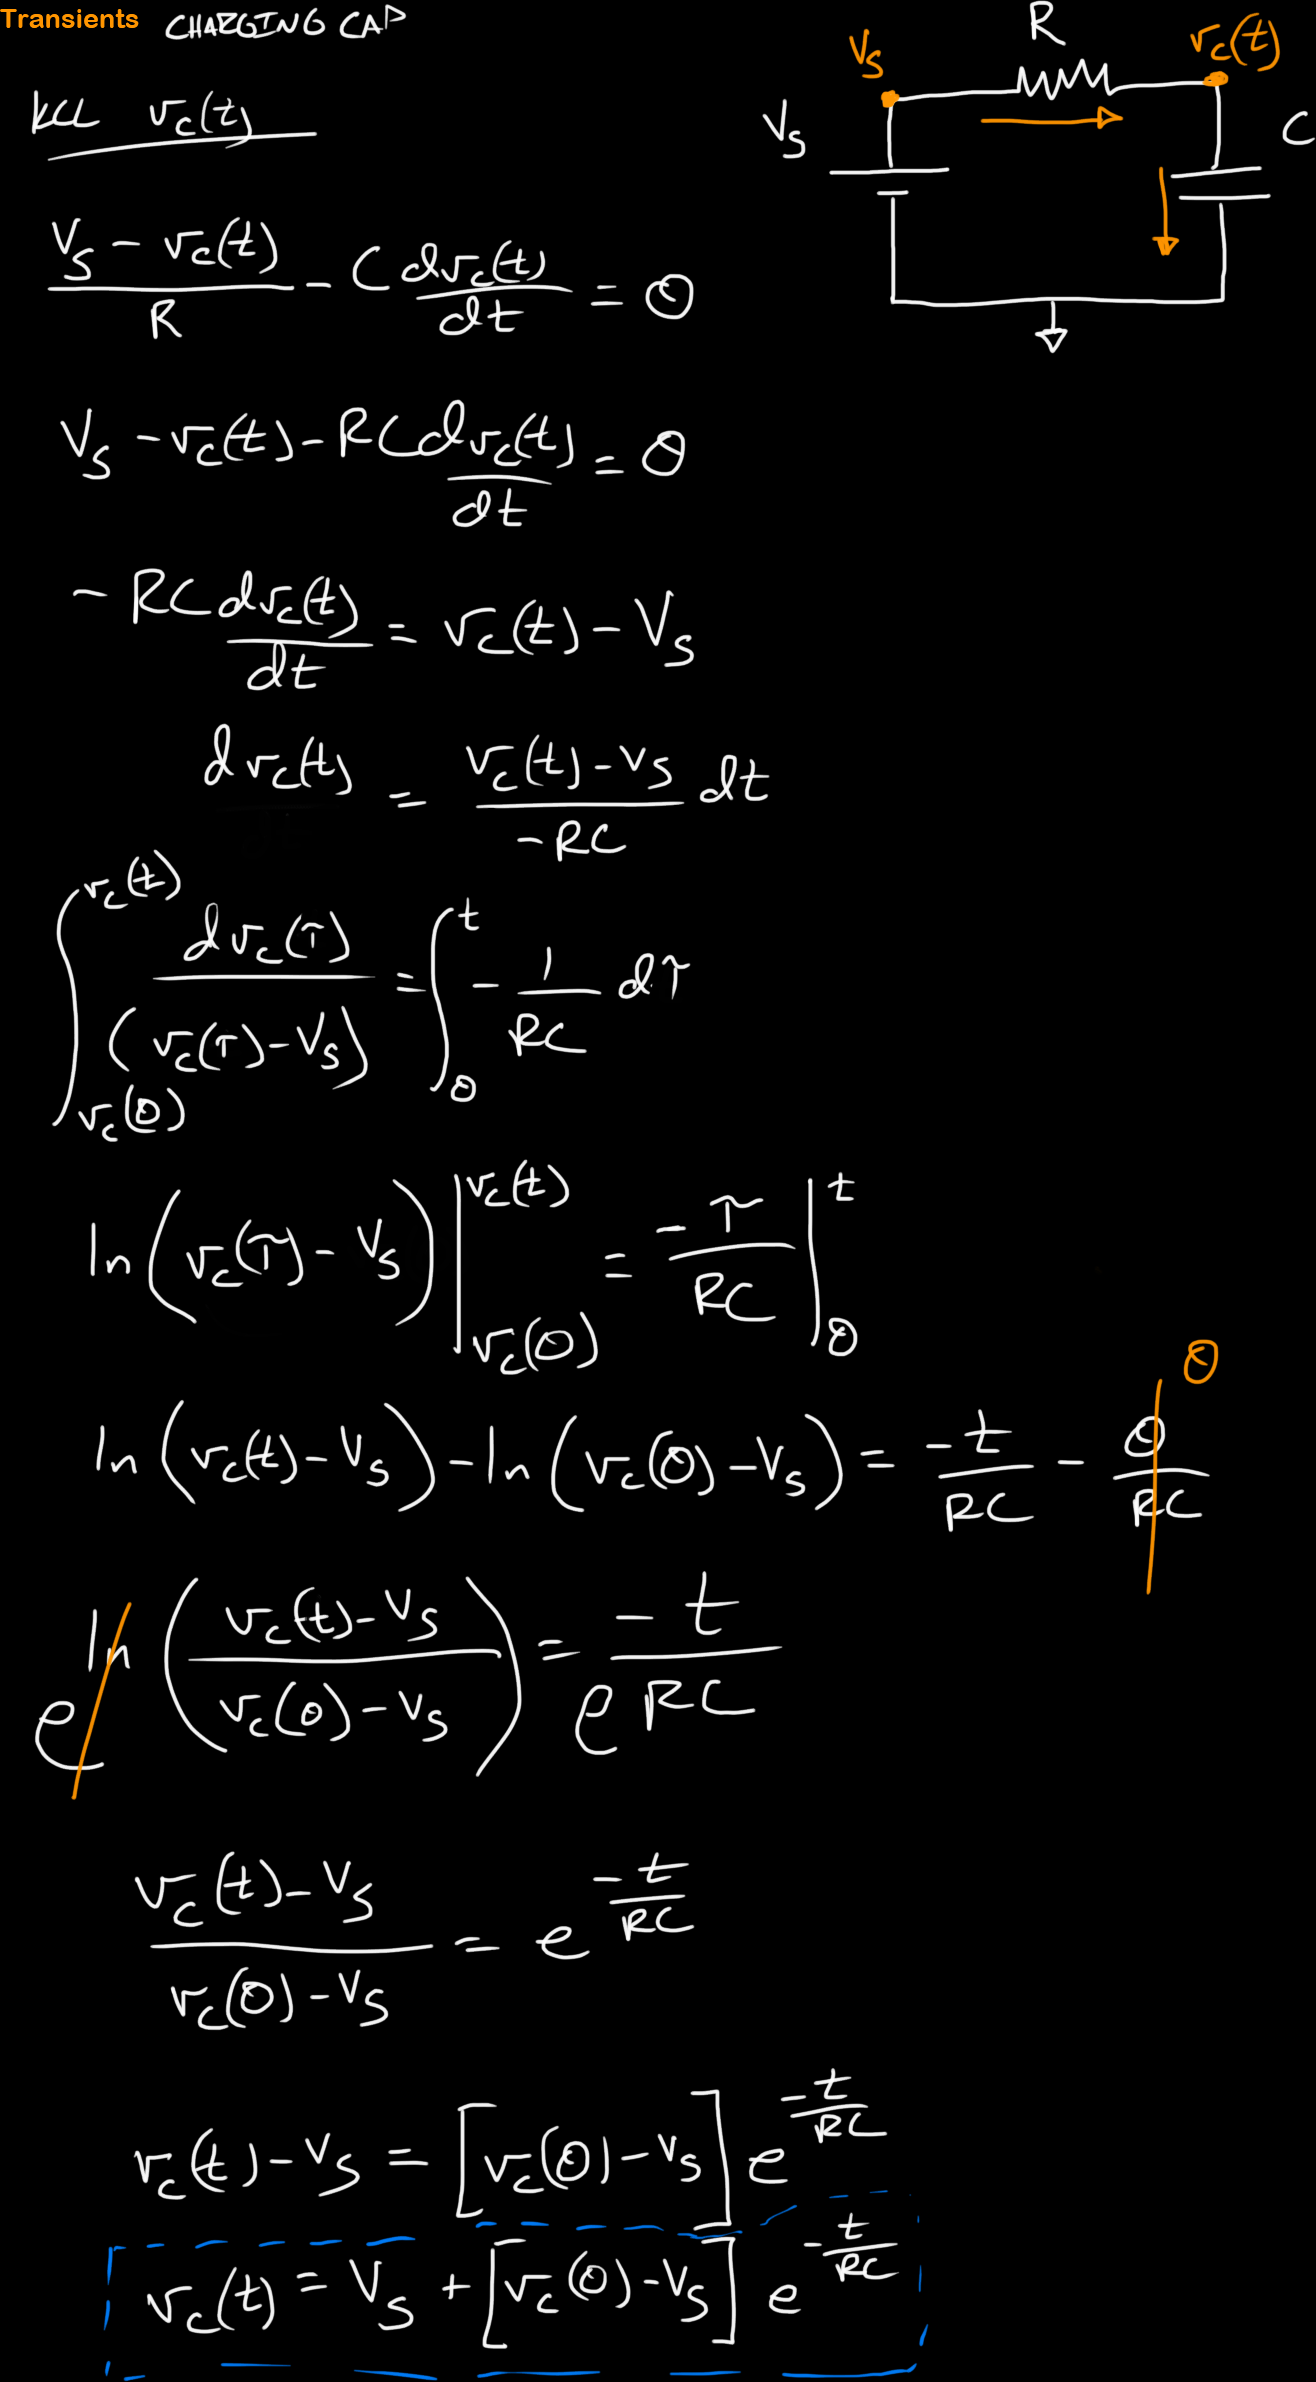 Transients CHARGING CAP
V_S R v_c(t)
V_S C
KCL v_c(t)
\frac{V_S - v_c(t)}{R} - C \frac{dv_c(t)}{dt} = 0
V_S - v_c(t) - RC \frac{dv_c(t)}{dt} = 0
-RC \frac{dv_c(t)}{dt} = v_c(t) - V_S
dv_c(t) = \frac{v_c(t) - V_S}{-RC} dt
\int_{v_c(0)}^{v_c(t)} \frac{dv_c(τ)}{(v_c(τ) - V_S)} = \int_0^t -\frac{1}{RC} dτ
ln(v_c(τ) - V_S) |_{v_c(0)}^{v_c(t)} = \frac{-τ}{RC} |_0^t
ln(v_c(t) - V_S) - ln(v_c(0) - V_S) = \frac{-t}{RC} - \frac{0}{RC} 0
e^{ln(\frac{v_c(t) - V_S}{v_c(0) - V_S})} = e^{\frac{-t}{RC}}
\frac{v_c(t) - V_S}{v_c(0) - V_S} = e^{\frac{-t}{RC}}
v_c(t) - V_S = [v_c(0) - V_S] e^{\frac{-t}{RC}}
v_c(t) = V_S + [v_c(0) - V_S] e^{-\frac{t}{RC}}